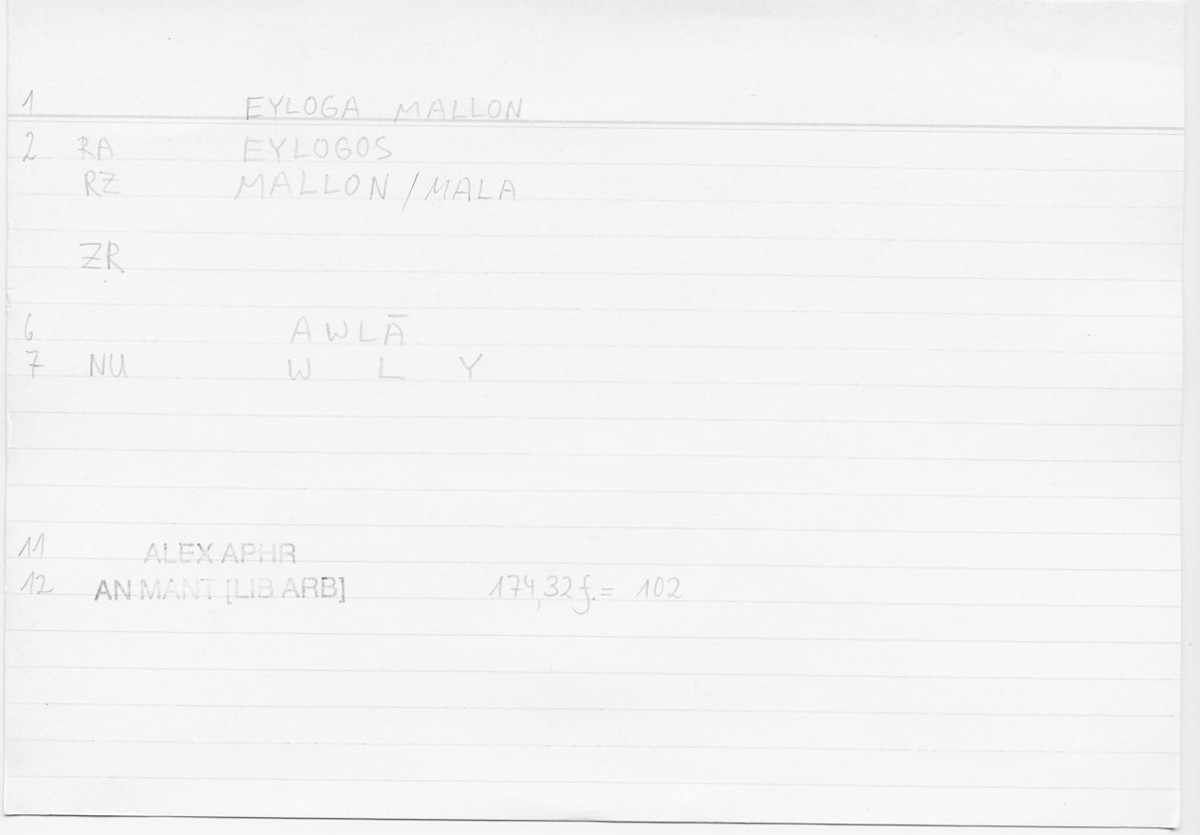 1 EYLOGA MALLON
2 RA EYLOGOS
RZ MALLON/MALA
ZR
6 AWLĀ
7 NU W L Y
11 ALEX APHR
12 AN MANT [LIB ARB] 174,32f.= 102